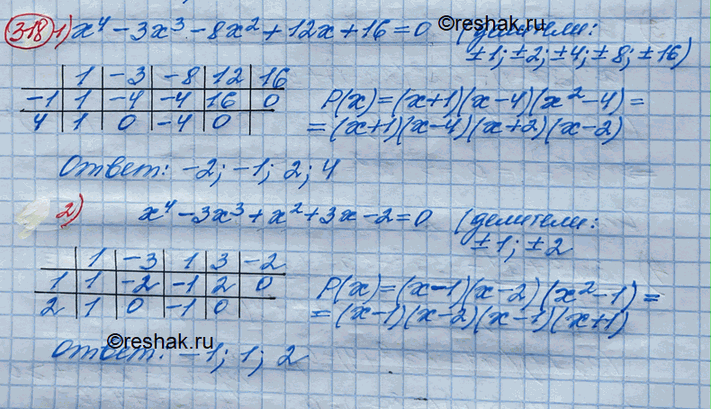 ©reshak.ru
318 1) x⁴ - 3x³ - 8x² + 12x + 16 = 0 (делители:
±1; ±2; ±4; ±8; ±16)
1 -3 -8 12 16
-1 1 -4 -4 16 0
4 1 0 -4 0
P(x) = (x+1)(x-4)(x²-4) =
= (x+1)(x-4)(x+2)(x-2)
Ответ: -2; -1; 2; 4
2) x⁴ - 3x³ + x² + 3x - 2 = 0 (делители:
±1; ±2
1 -3 1 3 -2
1 1 -2 -1 2 0
2 1 0 -1 0
P(x) = (x-1)(x-2)(x²-1) =
= (x-1)(x-2)(x-1)(x+1)
©reshak.ru
Ответ: -1; 1; 2